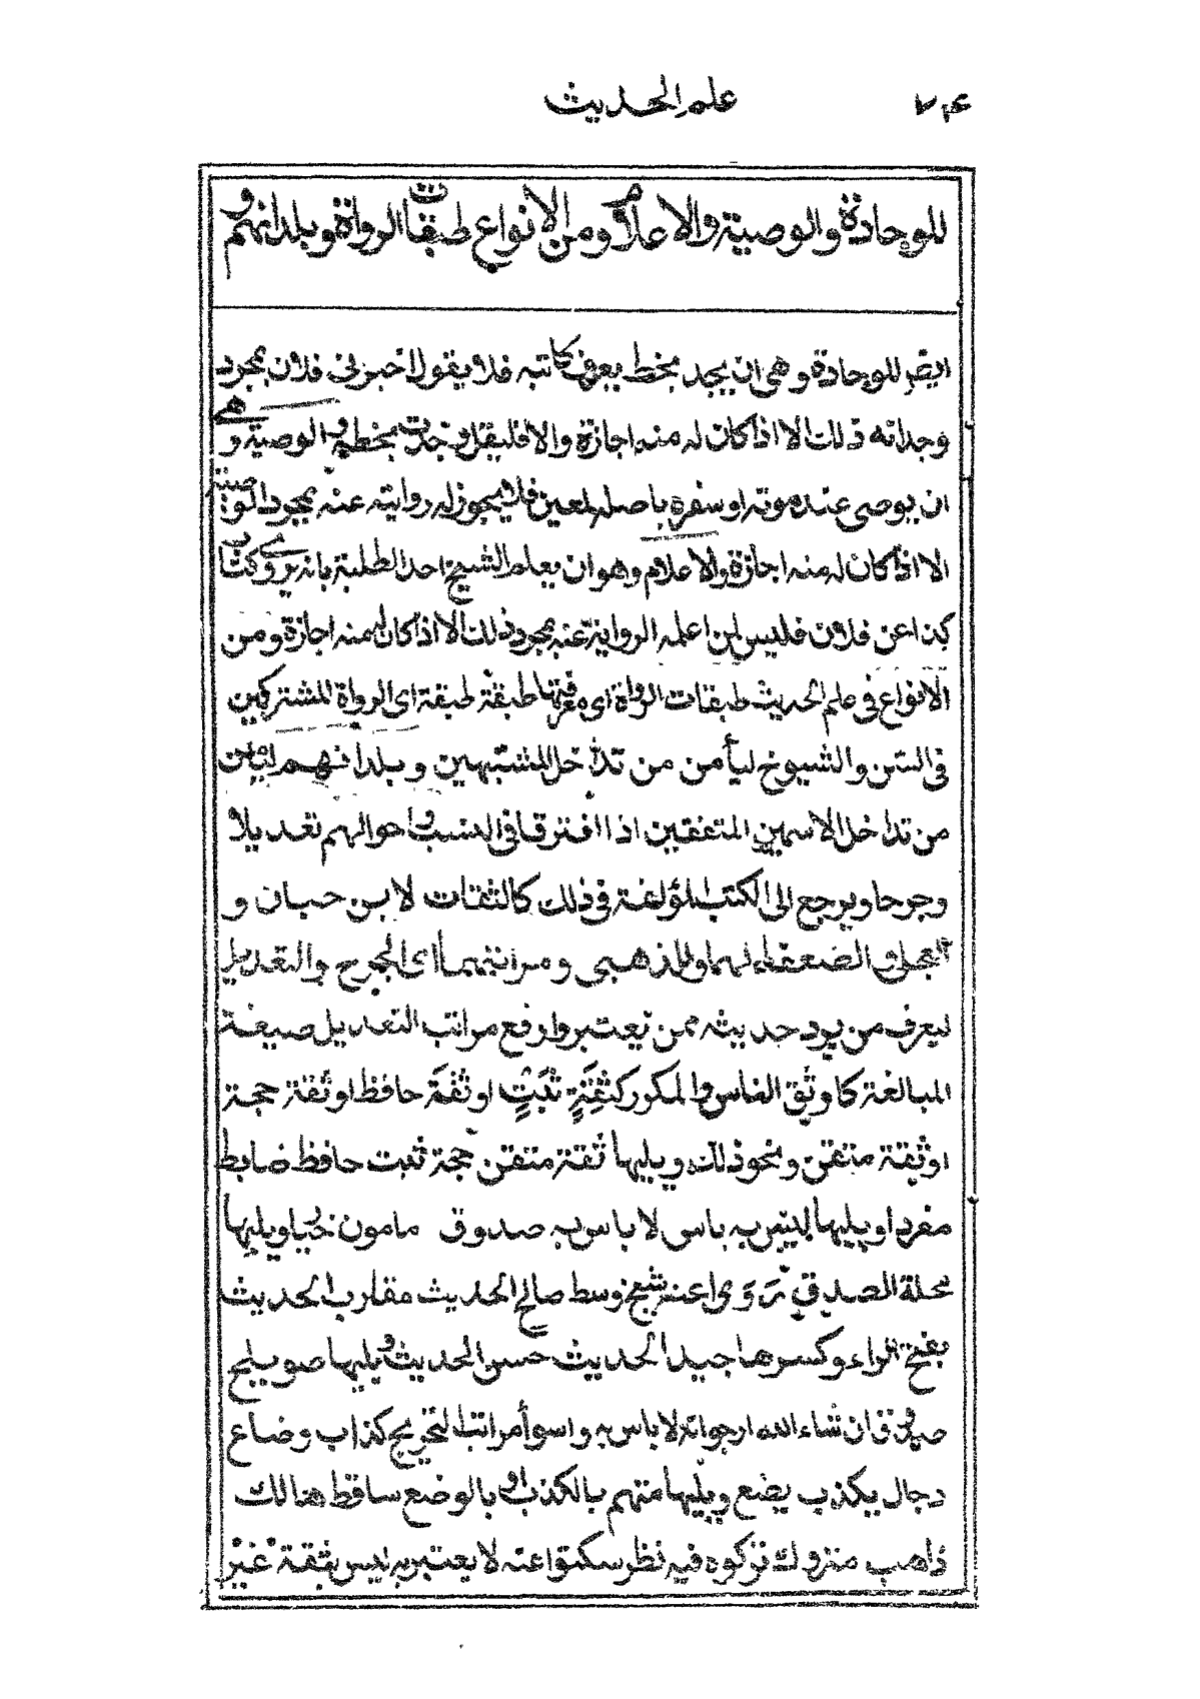 علم الحديث ٧٤
للوجادة والوصية والاعلام ومن الانواع طبقات الرواة وبلدانهم و
ايضر للوجادة وهى ان يجد بخط يعرف كاتبه فلا يقول اخبرنى فلان بمجرد
وجدانه ذلك الا اذا كان له منه اجازة والا فليقل وجدت بخطه و الوصية وهى
ان يوصى عند موته او سفره باصله لمعين فلا يجوز له روايته عنه بمجرد الوصية
الا اذا كان له منه اجازة والاعلام وهو ان يعلم الشيخ احد الطلبة بانه يروى كتاب
كذا عن فلان فليس لمن اعلمه الرواية عنه بمجرد ذلك الا اذا كان له منه اجازة ومن
الانواع فى علم الحديث طبقات الرواة اى معرفتها طبقة طبقة اى الرواة المشتركين
فى السن والشيوخ ليأمن من تداخل المشتبهين وبلدانهم ليأمن
من تداخل الاسمين المتفقين اذا افترقا فى النسب و احوالهم تعديلا
وجرحا ويرجع الى الكتب المؤلفة فى ذلك كالثقات لابن حبان و
العجلى الضعفاء لهما وللذهبى ومراتبهما اى الجرح والتعديل
ليعرف من يرد حديثه ممن يعتبر وارفع مراتب التعديل صيغة
المبالغة كاوثق الناس والمكرر كثقة ثبت او ثقة حافظ او ثقة حجة
او ثقة متقن ونحو ذلك ويليها ثقة متقن حجة ثبت حافظ ضابط
مفردا ويليها ليس به باس لا باس به صدوق مامون خيار ويليها
محلة الصدق رووا عنه شيخ وسط صالح الحديث مقارب الحديث
بفتح الراء وكسرها جيد الحديث حسن الحديث و يليها صويلح
صدوق ان شاء الله ارجوانه لا باس به واسوأ مراتب التجريح كذاب وضاع
دجال يكذب يضع ويليها متهم بالكذب او بالوضع ساقط هالك
ذاهب متروك تركوه فيه نظر سكتوا عنه لا يعتبر به ليس بثقة غير